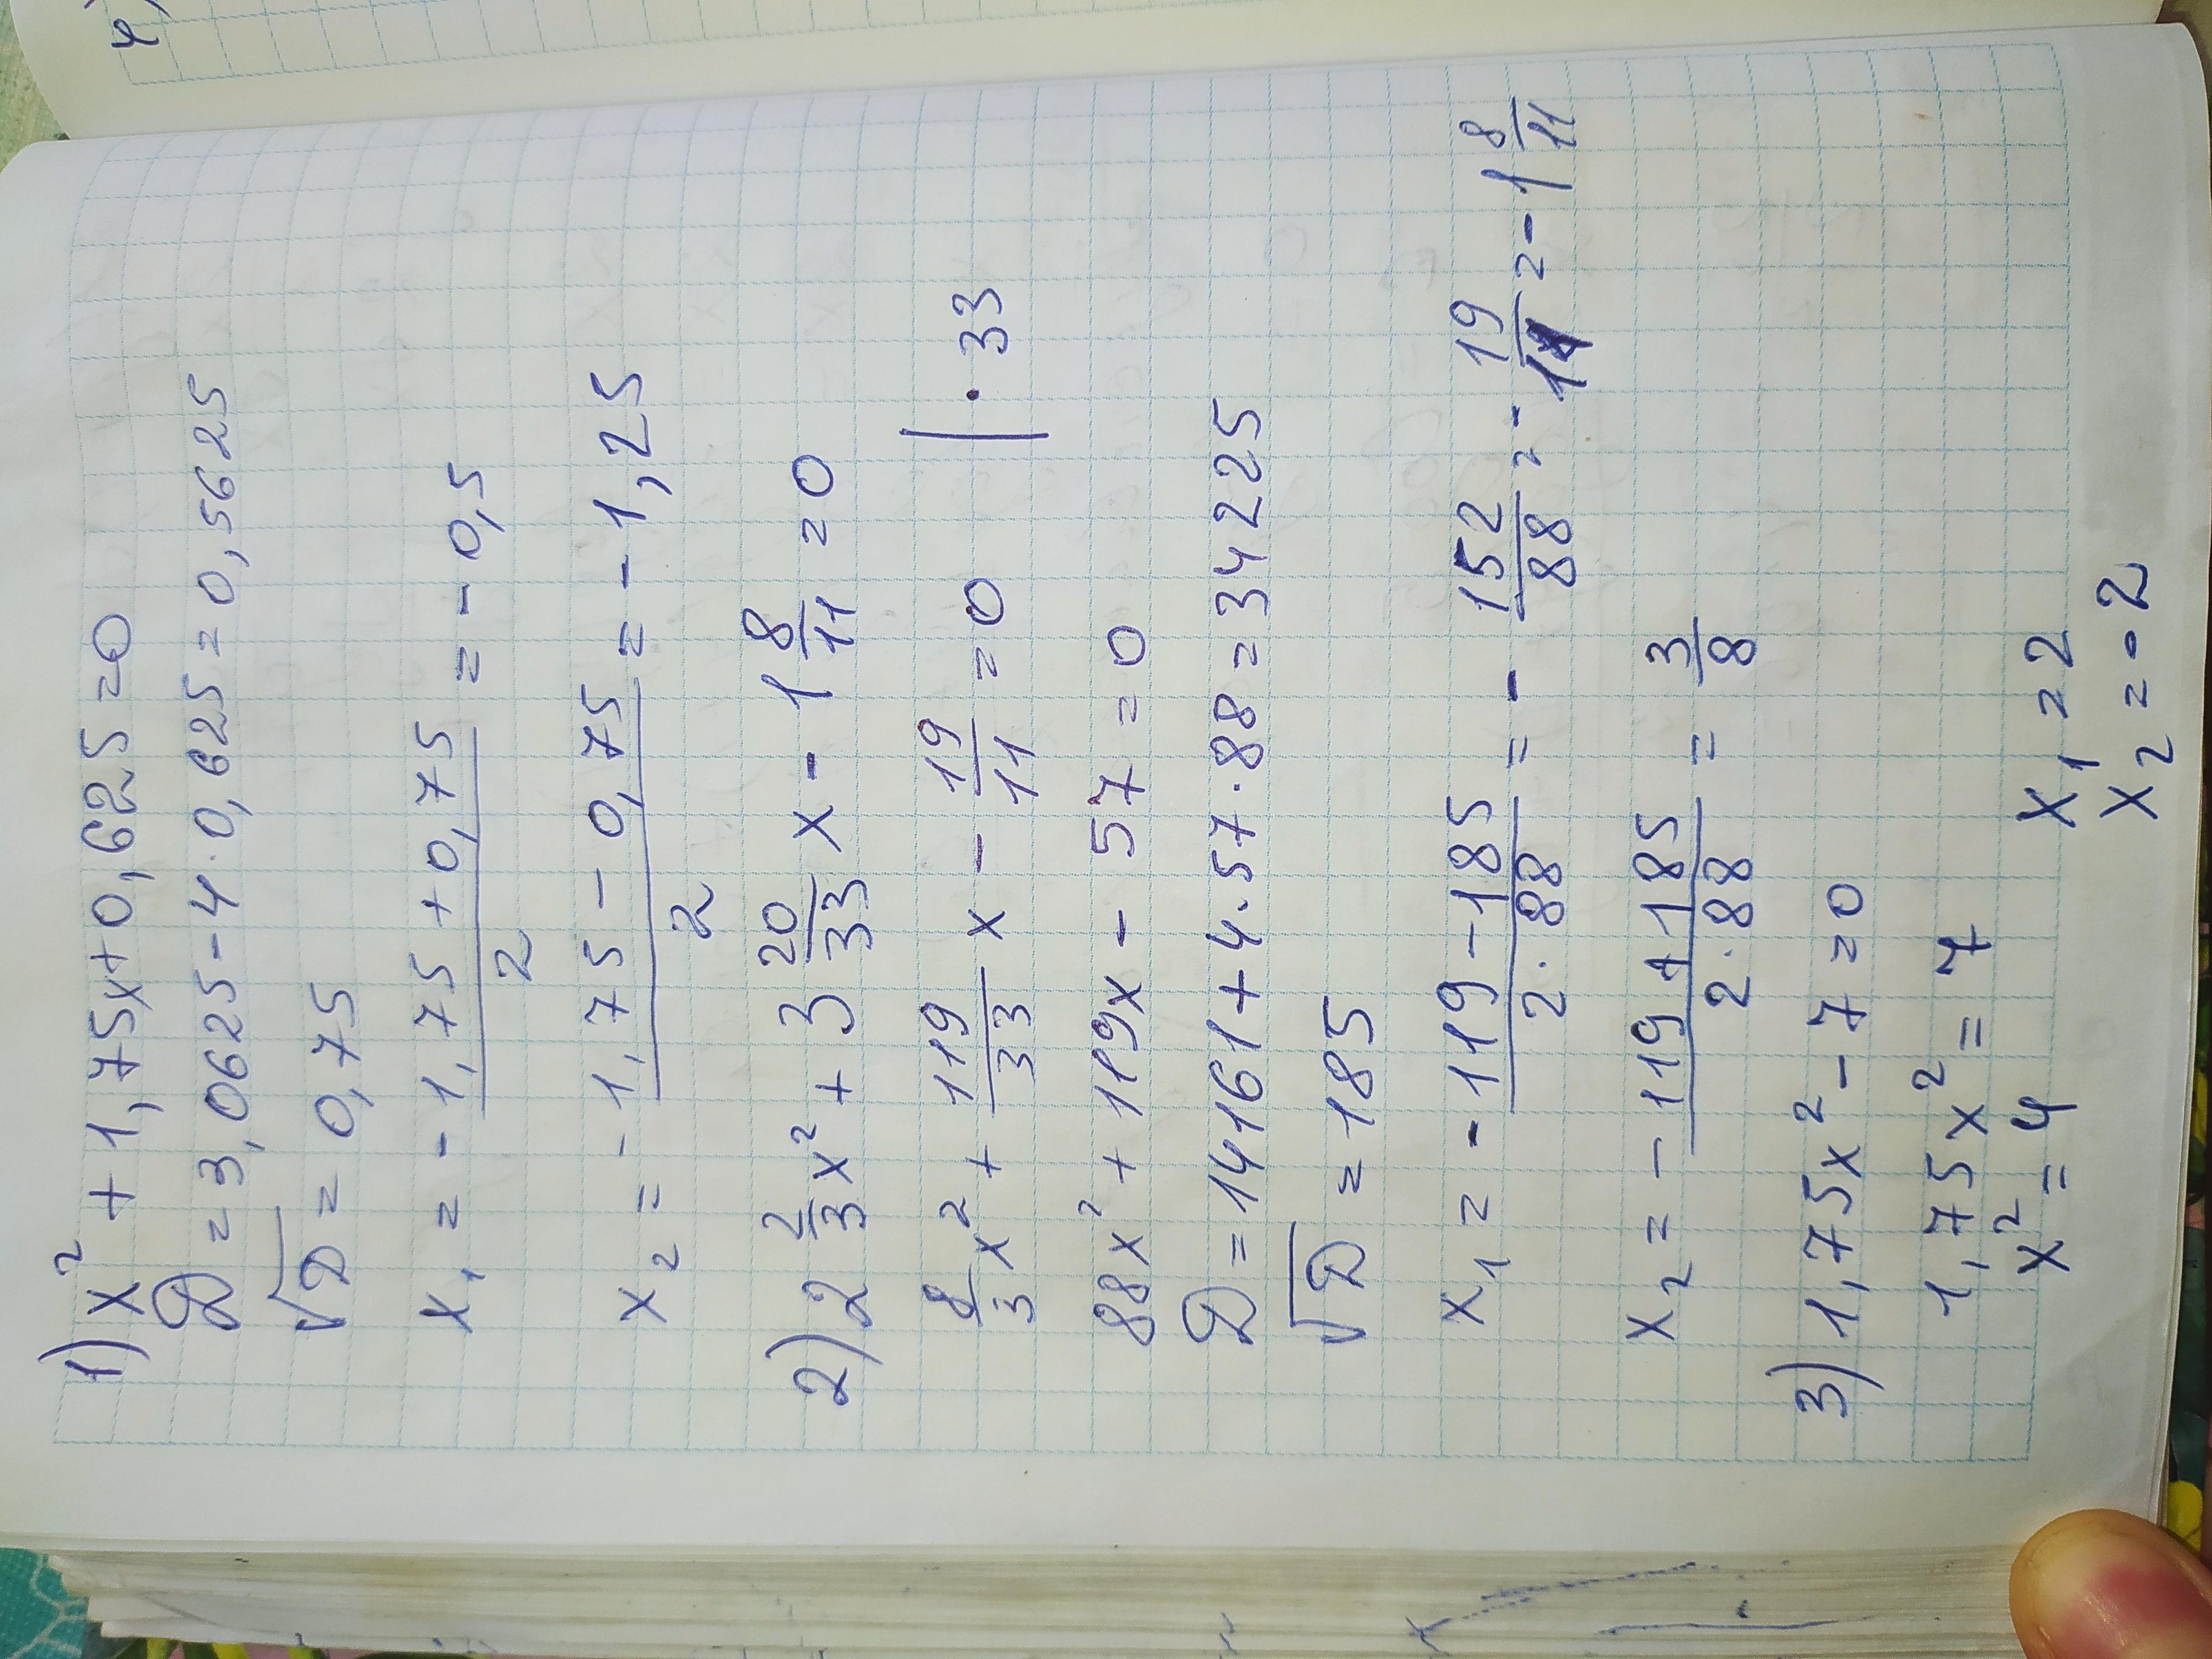 1) x² + 1,75x + 0,625 = 0
D = 3,0625 - 4·0,625 = 0,5625
√D = 0,75
x₁ = (-1,75 + 0,75)/2 = -0,5
x₂ = (-1,75 - 0,75)/2 = -1,25
2) 2 2/3 x² + 3 20/33 x - 1 8/11 = 0
8/3 x² + 119/33 x - 19/11 = 0 | · 33
88x² + 119x - 57 = 0
D = 14161 + 4·57·88 = 34225
√D = 185
x₁ = (-119 - 185)/(2·88) = - 152/88 = - 19/11 = -1 8/11
x₂ = (-119 + 185)/(2·88) = 3/8
3) 1,75x² - 7 = 0
1,75x² = 7
x² = 4 x₁ = 2
x₂ = -2
4)